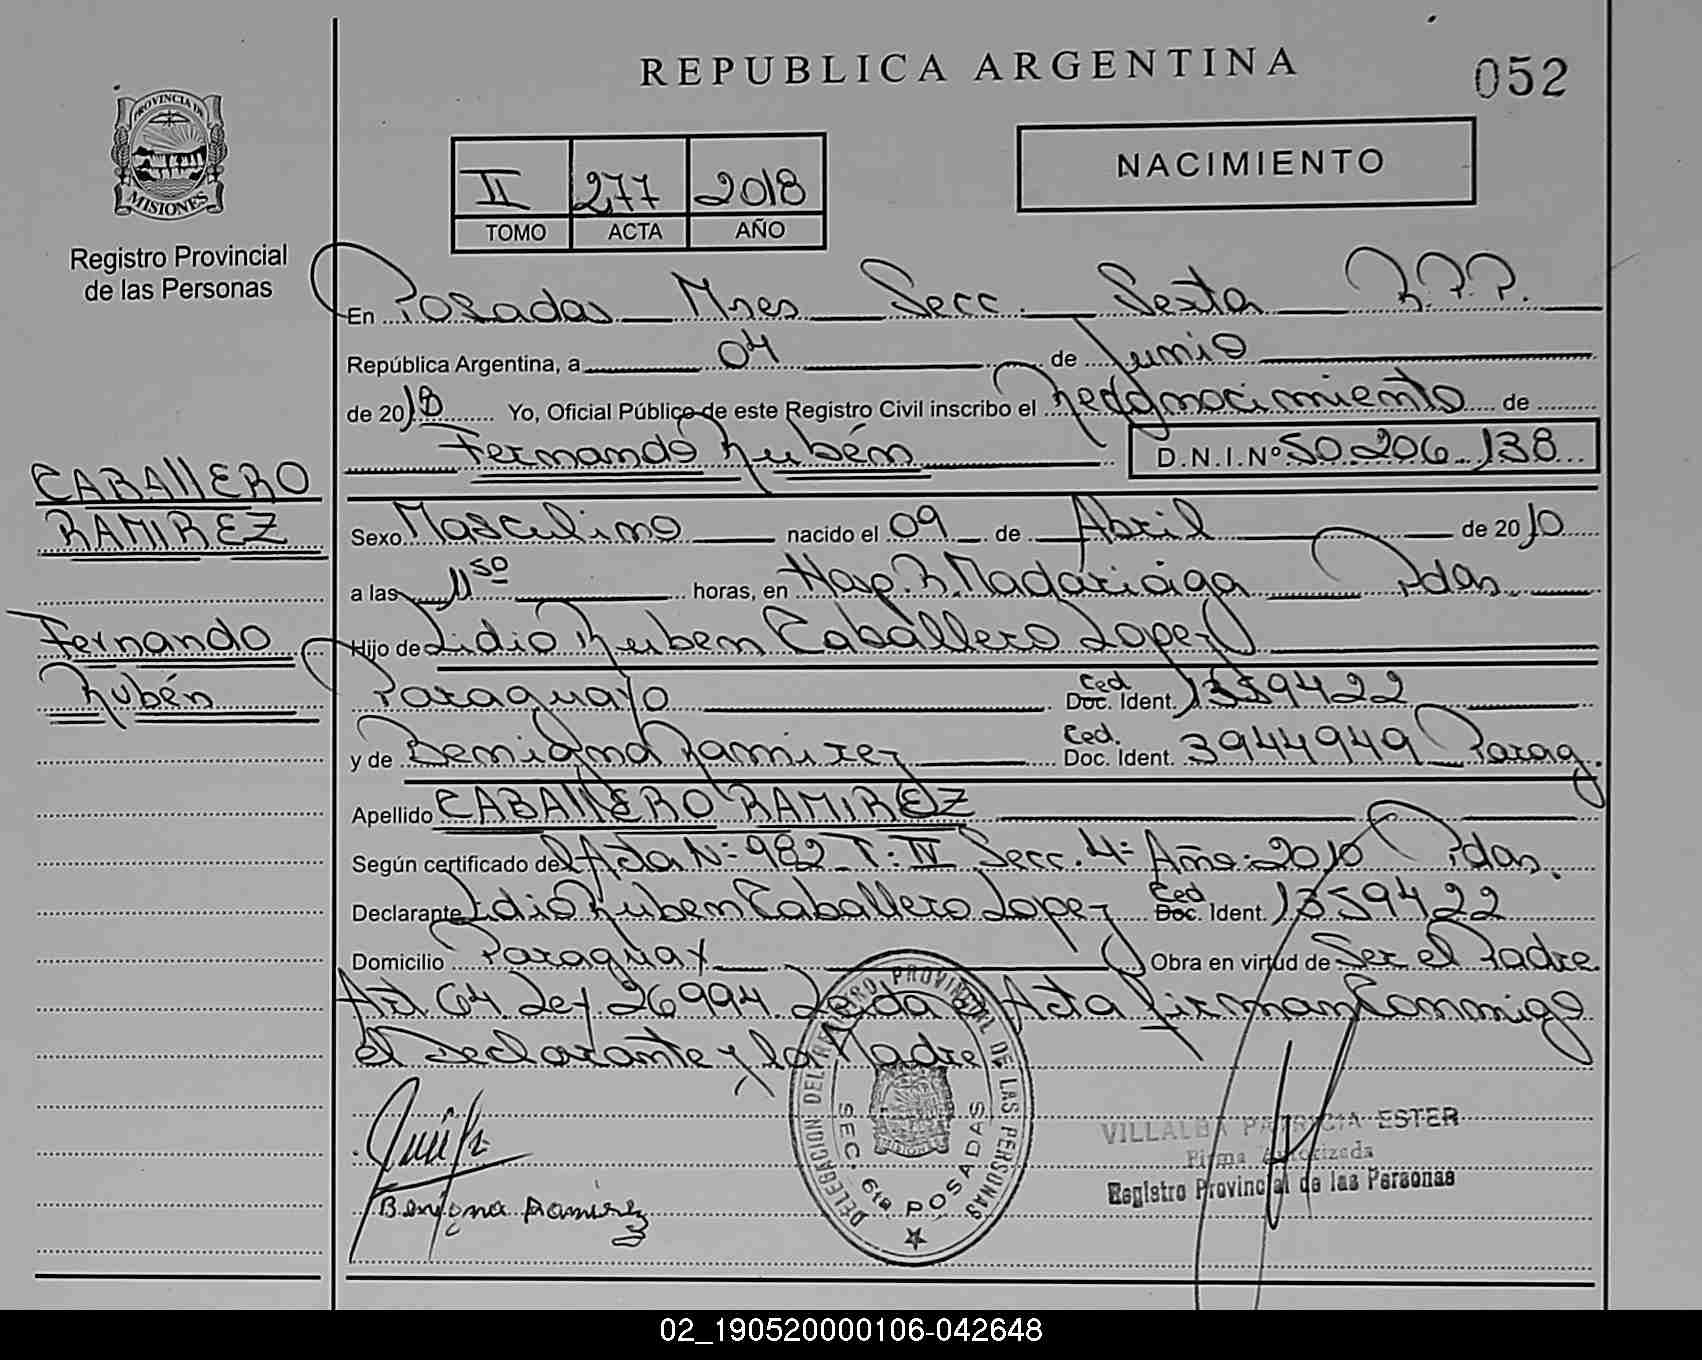 REPUBLICA ARGENTINA
052
PROVINCIA DE MISIONES
Registro Provincial
de las Personas
II 277 2018
TOMO ACTA AÑO
NACIMIENTO
En Posadas Mnes Secc. Sexta R.P.P.
República Argentina, a 04 de Junio
de 2018 Yo, Oficial Público de este Registro Civil inscribo el Reconocimiento de
Fernando Rubén D.N.I.Nº 50.206.138
CABAllERO
RAMIREZ
Fernando
Rubén
Sexo Masculino nacido el 09 de Abril de 2010
a las 11 50 horas, en Hosp. R. Madariaga Pdas.
Hijo de Lidio Ruben Caballero Lopez
Paraguayo Ced Doc. Ident. 1359422
y de Benigna Ramirez Ced. Doc. Ident. 3944949 Parag.
Apellido CABAllERO RAMIREZ
Según certificado del Acta Nº 982 T: IV Secc. 4ª Año: 2010 Pdas.
Declarante Lidio Ruben Caballero Lopez Ced Doc. Ident. 1359422
Domicilio Paraguay Obra en virtud de Ser el Padre
Art. 64 Ley 26994. Leida el Acta firman Conmigo
el Declarante y la Madre
Benigna Ramirez
DELEGACION DEL REGISTRO PROVINCIAL DE LAS PERSONAS
SEC. 6ta POSADAS
VILLALBA PATRICIA ESTER
Firma Autorizada
Registro Provincial de las Personas
02_190520000106-042648